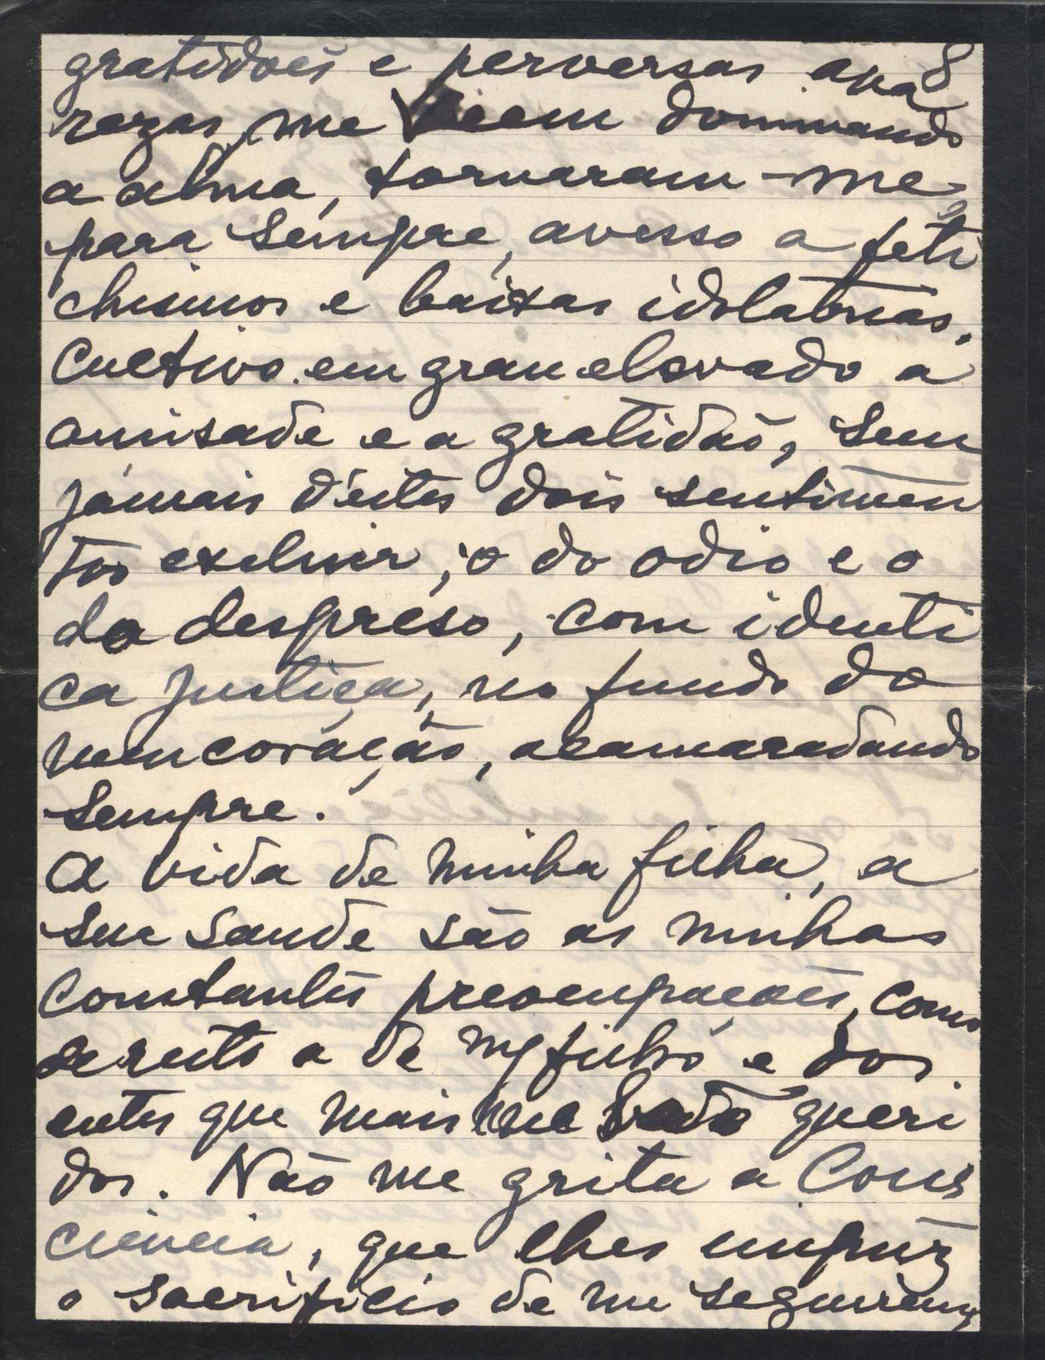 8
gratidoēs e perversas
rezas, me veem dominando
a alma, tornaram-me,
para sempre, avesso a feti
chismos e baixas idolatrias.
Cultivo em grau elevado a
amisade e a gratidaō, sem
jámais d'estes dois sentimen
tos excluir, o do odio e o
do despreso, com identi
ca justiça, no fundo do
meu coração, acamaradando
sempre.
A vida de minha filha, a
sua saude são as minhas
constantes preocupações, como
de resto a de filho e dos
entes que mais me são queri
dos. Não me grita a Cons
ciencia, que lhes impuz
o sacrificio de me seguirem,